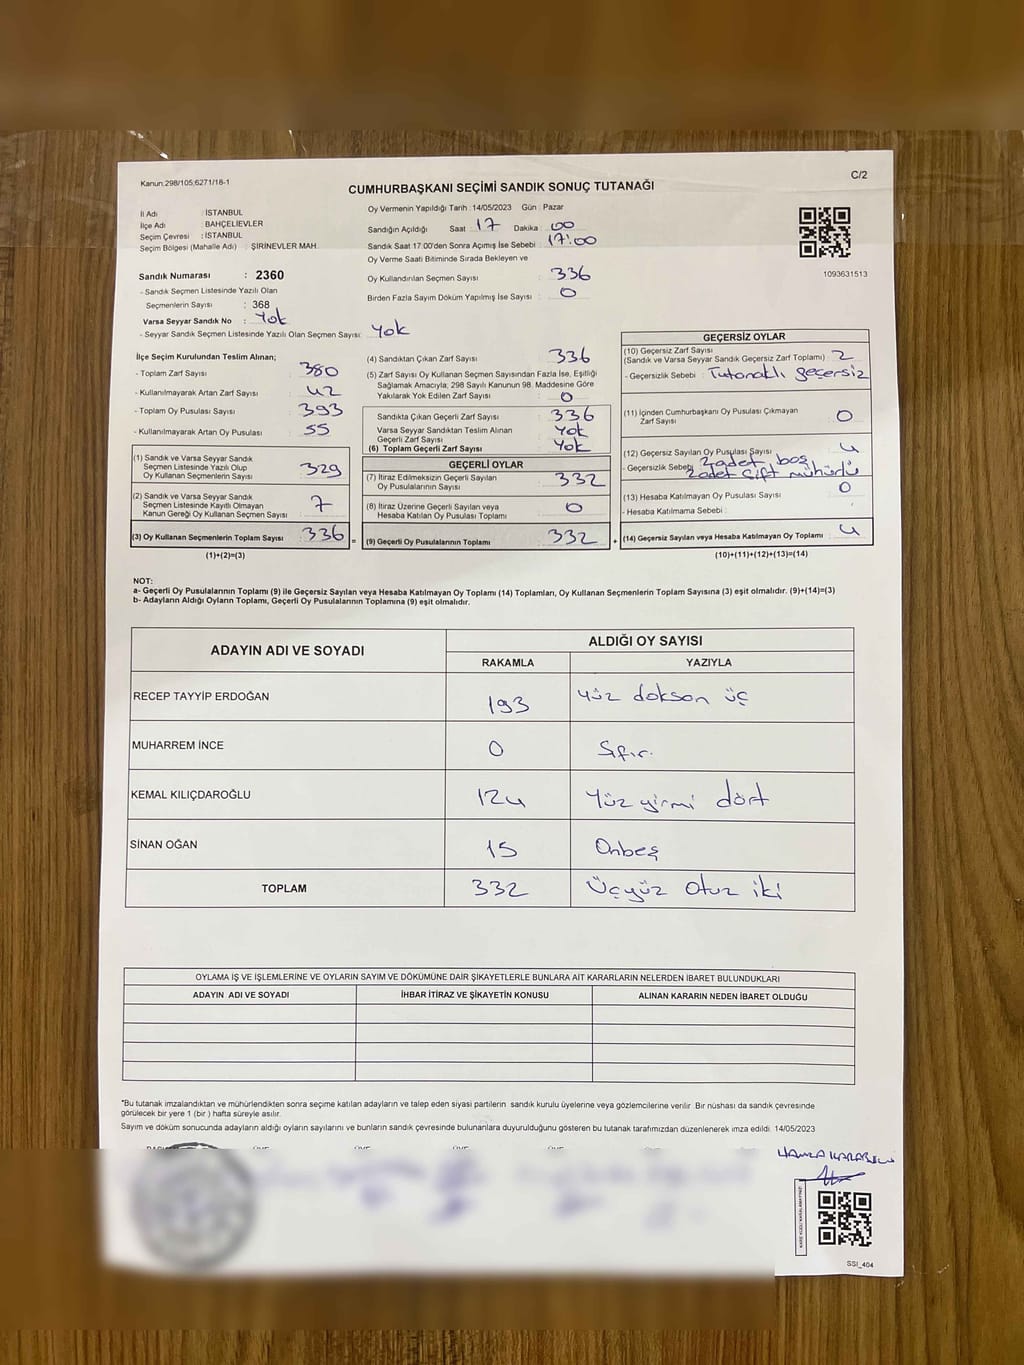 Kanun:298/105;6271/18-1
C/2
CUMHURBAŞKANI SEÇİMİ SANDIK SONUÇ TUTANAĞI
İl Adı : İSTANBUL
İlçe Adı : BAHÇELİEVLER
Seçim Çevresi : İSTANBUL
Seçim Bölgesi (Mahalle Adı) : ŞİRİNEVLER MAH.
Sandık Numarası : 2360
- Sandık Seçmen Listesinde Yazılı Olan
Seçmenlerin Sayısı : 368
Varsa Seyyar Sandık No : Yok
- Seyyar Sandık Seçmen Listesinde Yazılı Olan Seçmen Sayısı: Yok
Oy Vermenin Yapıldığı Tarih : 14/05/2023 Gün : Pazar
Sandığın Açıldığı Saat 17 Dakika : 00
Sandık Saat 17.00'den Sonra Açımış İse Sebebi : 17:00
Oy Verme Saati Bitiminde Sırada Bekleyen ve
Oy Kullandırılan Seçmen Sayısı : 336
Birden Fazla Sayım Döküm Yapılmış İse Sayısı : 0
1093631513
İlçe Seçim Kurulundan Teslim Alınan;
- Toplam Zarf Sayısı : 380
- Kullanılmayarak Artan Zarf Sayısı : 42
- Toplam Oy Pusulası Sayısı : 393
- Kullanılmayarak Artan Oy Pusulası : 55
(1) Sandık ve Varsa Seyyar Sandık
Seçmen Listesinde Yazılı Olup
Oy Kullanan Seçmenlerin Sayısı : 329
(2) Sandık ve Varsa Seyyar Sandık
Seçmen Listesinde Kayıtlı Olmayan
Kanun Gereği Oy Kullanan Seçmen Sayısı : 7
(3) Oy Kullanan Seçmenlerin Toplam Sayısı : 336 =
(1)+(2)=(3)
(4) Sandıktan Çıkan Zarf Sayısı : 336
(5) Zarf Sayısı Oy Kullanan Seçmen Sayısından Fazla İse, Eşitliği
Sağlamak Amacıyla; 298 Sayılı Kanunun 98. Maddesine Göre
Yakılarak Yok Edilen Zarf Sayısı : 0
Sandıkta Çıkan Geçerli Zarf Sayısı : 336
Varsa Seyyar Sandıktan Teslim Alınan
Geçerli Zarf Sayısı : Yok
(6) Toplam Geçerli Zarf Sayısı : Yok
GEÇERLİ OYLAR
(7) İtiraz Edilmeksizin Geçerli Sayılan
Oy Pusulalarının Sayısı : 332
(8) İtiraz Üzerine Geçerli Sayılan veya
Hesaba Katılan Oy Pusulası Toplamı : 0
(9) Geçerli Oy Pusulalarının Toplamı : 332 +
GEÇERSİZ OYLAR
(10) Geçersiz Zarf Sayısı
(Sandık ve Varsa Seyyar Sandık Geçersiz Zarf Toplamı) : 2
- Geçersizlik Sebebi : Tutanaklı geçersiz
(11) İçinden Cumhurbaşkanı Oy Pusulası Çıkmayan
Zarf Sayısı : 0
(12) Geçersiz Sayılan Oy Pusulası Sayısı : 4
- Geçersizlik Sebebi : 2 adet boş
2 adet çift mühürlü
(13) Hesaba Katılmayan Oy Pusulası Sayısı : 0
- Hesaba Katılmama Sebebi :
(14) Geçersiz Sayılan veya Hesaba Katılmayan Oy Toplamı : 4
(10)+(11)+(12)+(13)=(14)
NOT:
a- Geçerli Oy Pusulalarının Toplamı (9) ile Geçersiz Sayılan veya Hesaba Katılmayan Oy Toplamı (14) Toplamları, Oy Kullanan Seçmenlerin Toplam Sayısına (3) eşit olmalıdır. (9)+(14)=(3)
b- Adayların Aldığı Oyların Toplamı, Geçerli Oy Pusulalarının Toplamına (9) eşit olmalıdır.
ADAYIN ADI VE SOYADI
ALDIĞI OY SAYISI
RAKAMLA YAZIYLA
RECEP TAYYİP ERDOĞAN 193 Yüz dokson üç
MUHARREM İNCE 0 Sıfır.
KEMAL KILIÇDAROĞLU 124 Yüz yirmi dört
SİNAN OĞAN 15 Onbeş
TOPLAM 332 Üçyüz otuz iki
OYLAMA İŞ VE İŞLEMLERİNE VE OYLARIN SAYIM VE DÖKÜMÜNE DAİR ŞİKAYETLERLE BUNLARA AİT KARARLARIN NELERDEN İBARET BULUNDUKLARI
ADAYIN ADI VE SOYADI İHBAR İTİRAZ VE ŞİKAYETİN KONUSU ALINAN KARARIN NEDEN İBARET OLDUĞU
"Bu tutanak imzalandıktan ve mühürlendikten sonra seçime katılan adayların ve talep eden siyasi partilerin sandık kurulu üyelerine veya gözlemcilerine verilir. Bir nüshası da sandık çevresinde
görülecek bir yere 1 (bir ) hafta süreyle asılır.
Sayım ve döküm sonucunda adayların aldığı oyların sayılarını ve bunların sandık çevresinde bulunanlara duyurulduğunu gösteren bu tutanak tarafımızdan düzenlenerek imza edildi. 14/05/2023
SSI_404